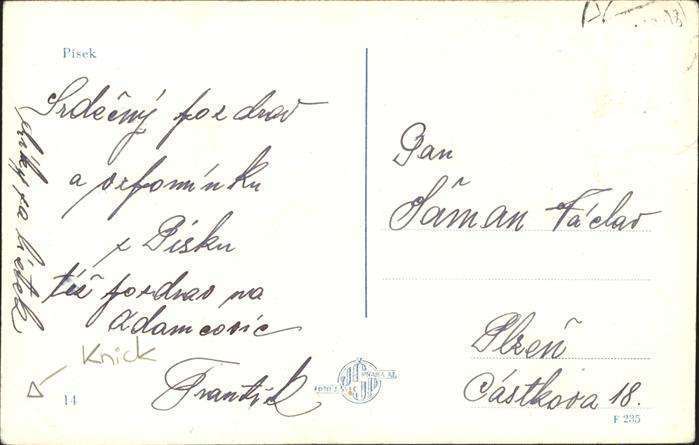 Písek
Srdečný pozdrav
a vzpomínku
z Písku
též pozdrav na
Adamcovic
František
díky za lístek
Knick
14
Pan
Šáman Václav
Plzeň
Částkova 18.
F 235